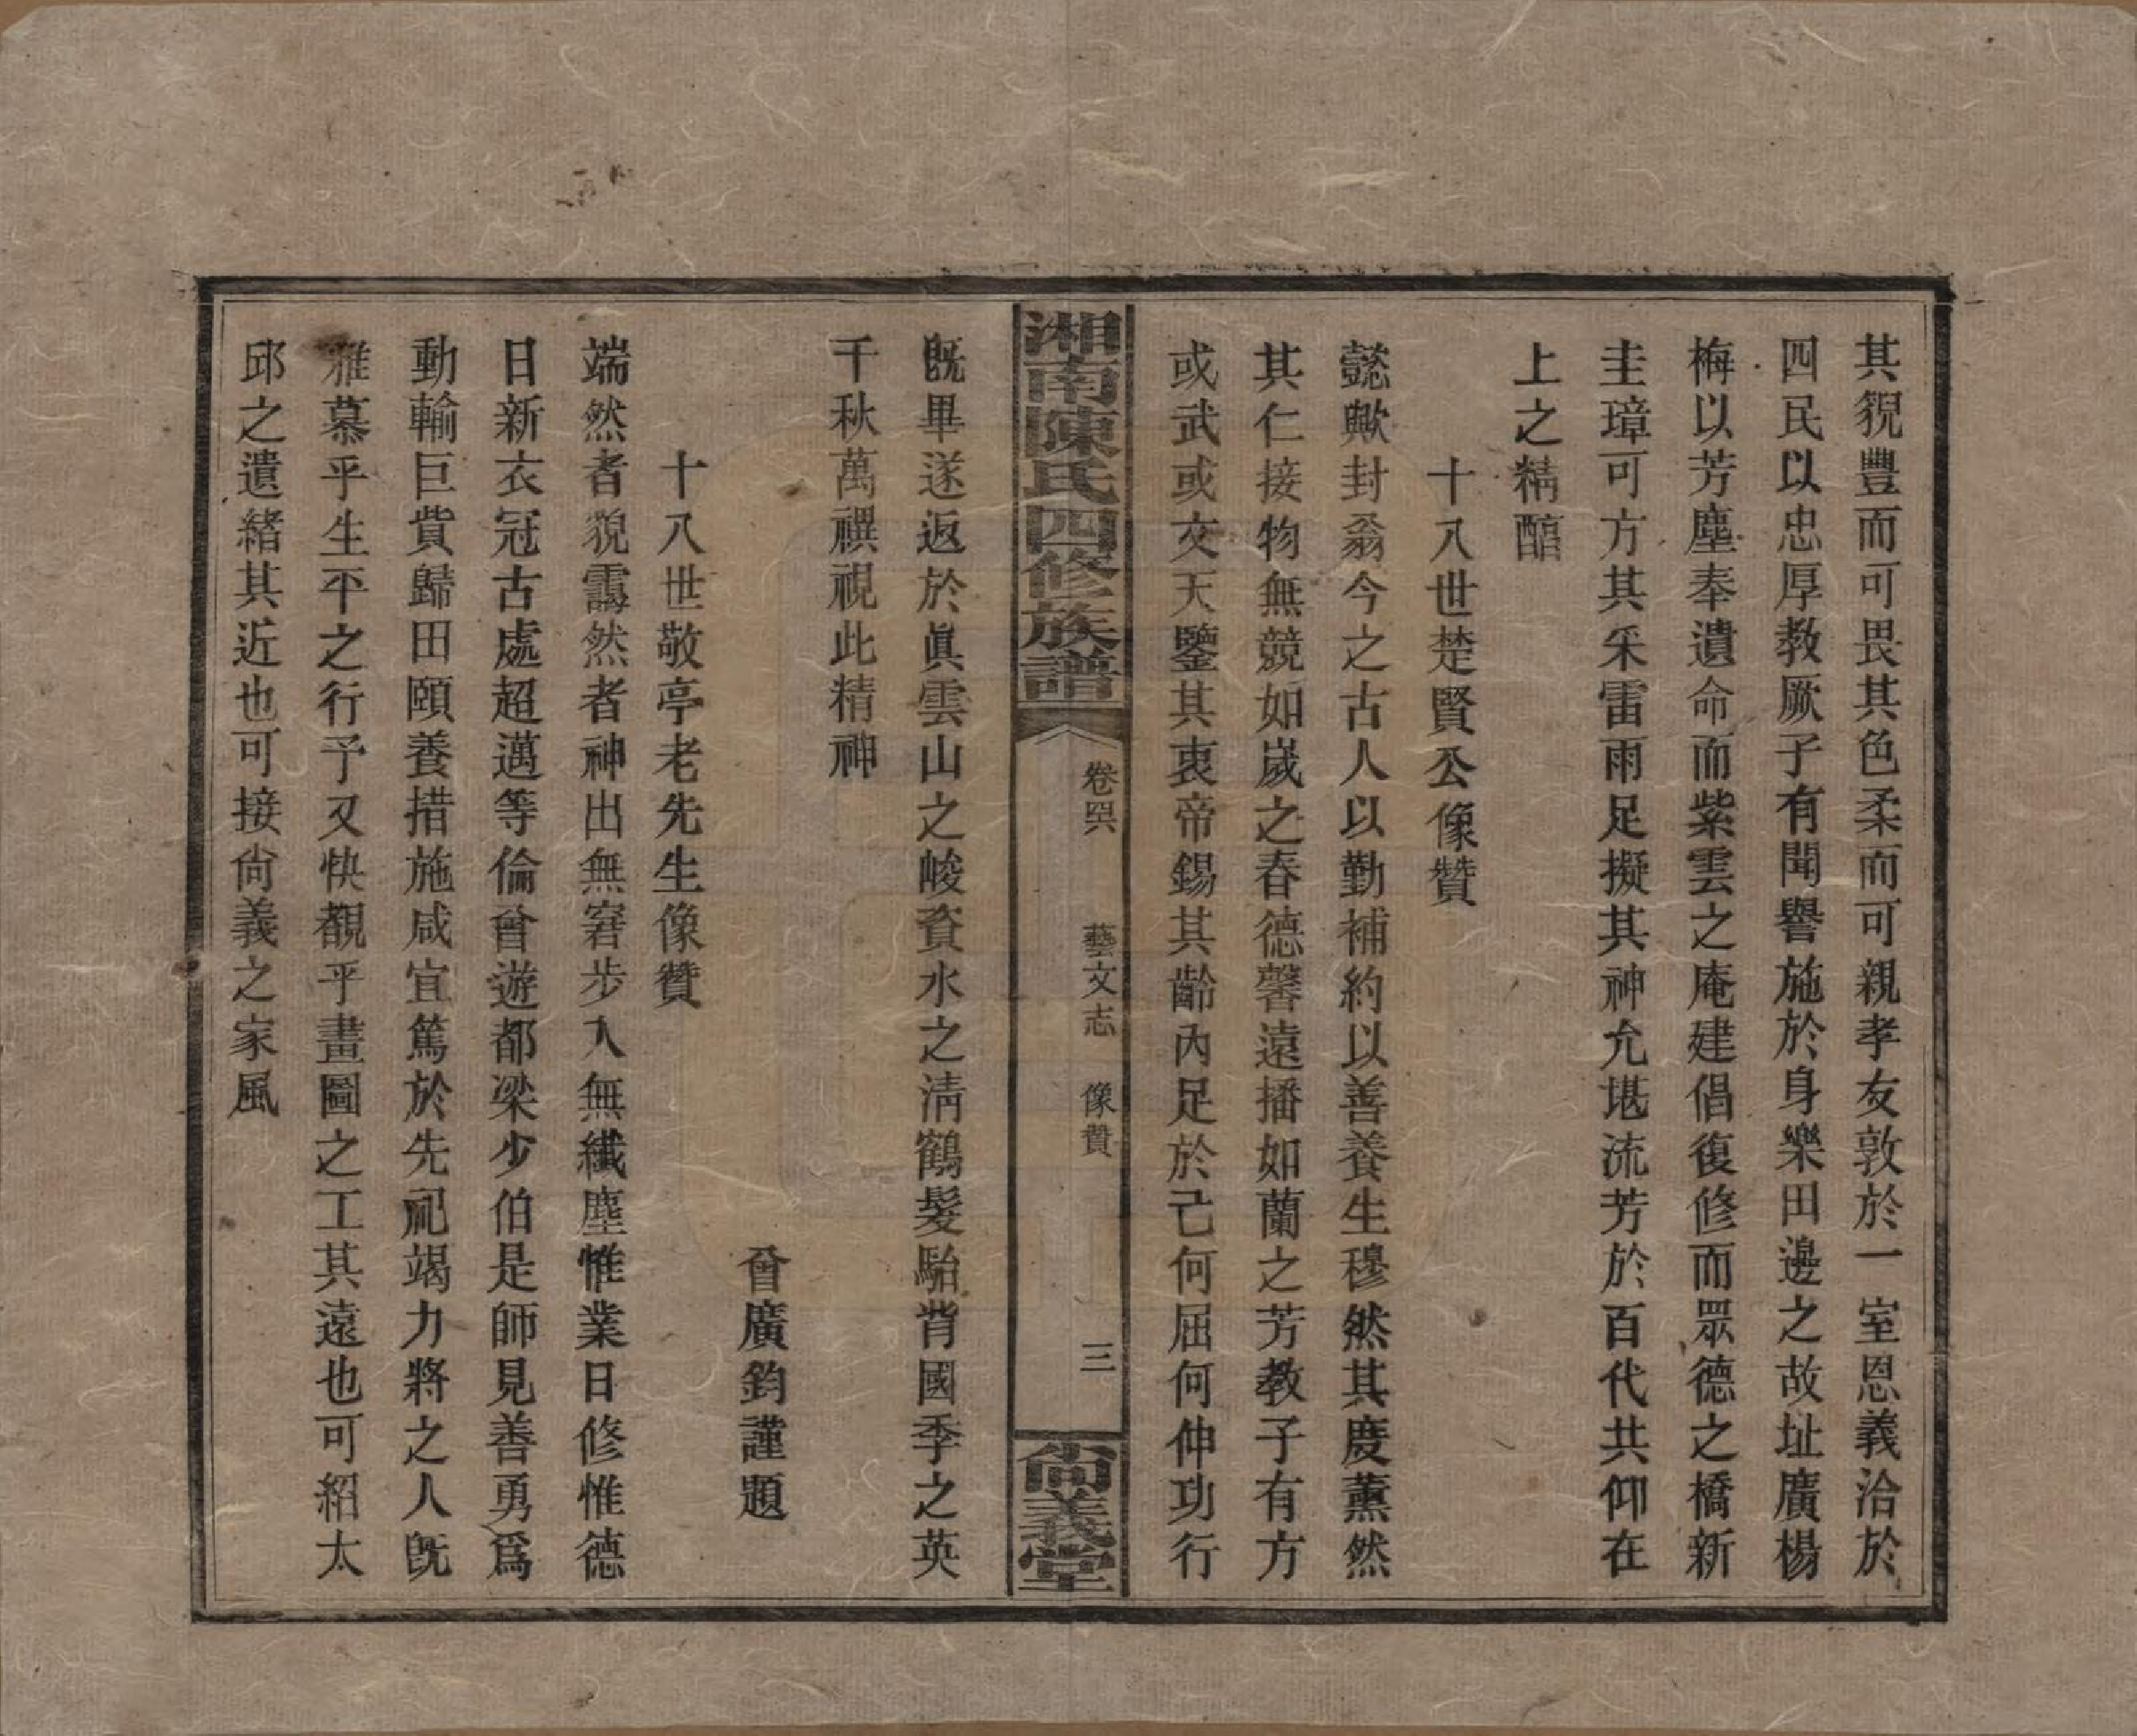 其貌豐而可畏其色柔而可親孝友敦於一室恩義洽於
四民以忠厚教厥子有聞譽施於身樂田邊之故址廣楊
梅以芳塵奉遺命而紫雲之庵建倡復修而眾德之橋新
圭璋可方其采雷雨足擬其神允堪流芳於百代共仰在
上之精醕
十八世楚賢公像贊
懿歟封翁今之古人以勤補約以善養生穆然其度薰然
其仁接物無競如嵗之春德馨遠播如蘭之芳教子有方
或武或文天鑒其衷帝錫其齡內足於己何屈何伸功行
湘南陳氏四修族譜
卷四六
藝文志
像贊
三
尚義堂
旣畢遂返於眞雲山之峻資水之淸鶴髮駘背國季之英
千秋萬禩視此精神
曾廣鈞謹題
十八世敬亭老先生像贊
端然者貌靄然者神出無窘步入無纖塵惟業日修惟德
日新衣冠古處超邁等倫曾遊都梁少伯是師見善勇爲
動輸巨貲歸田頤養措施咸宜篤於先祀竭力將之人旣
雅慕乎生平之行予又快覩乎畫圖之工其遠也可紹太
邱之遺緒其近也可接尙義之家風